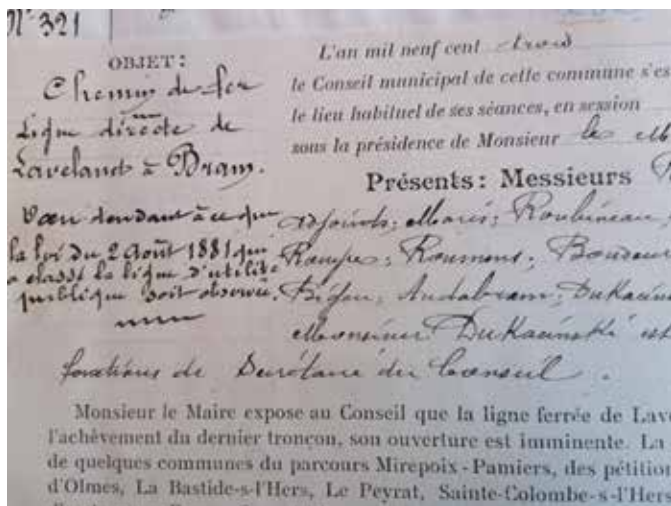 N° 321
OBJET :
Chemin de fer
Ligne directe de
Lavelanet à Bram.
Vœu tendant à ce que
la loi du 2 Août 1881 qui
a classé la ligne d'utilité
publique soit observée.
L'an mil neuf cent trois
le Conseil municipal de cette commune s'es
le lieu habituel de ses séances, en session
sous la présidence de Monsieur le M
Présents : Messieurs
adjoints; Maris; Roubineau,
Rampe; Roumens; Bonde
Bigou; Andabram; Dukacins
Monsieur Dukacinski est
fonctions de Secrétaire du Conseil.
Monsieur le Maire expose au Conseil que la ligne ferrée de Lave
l'achèvement du dernier tronçon, son ouverture est imminente. La
de quelques communes du parcours Mirepoix-Pamiers, des pétition
d'Olmes, La Bastide-s-l'Hers, Le Peyrat, Sainte-Colombe-s-l'Hers